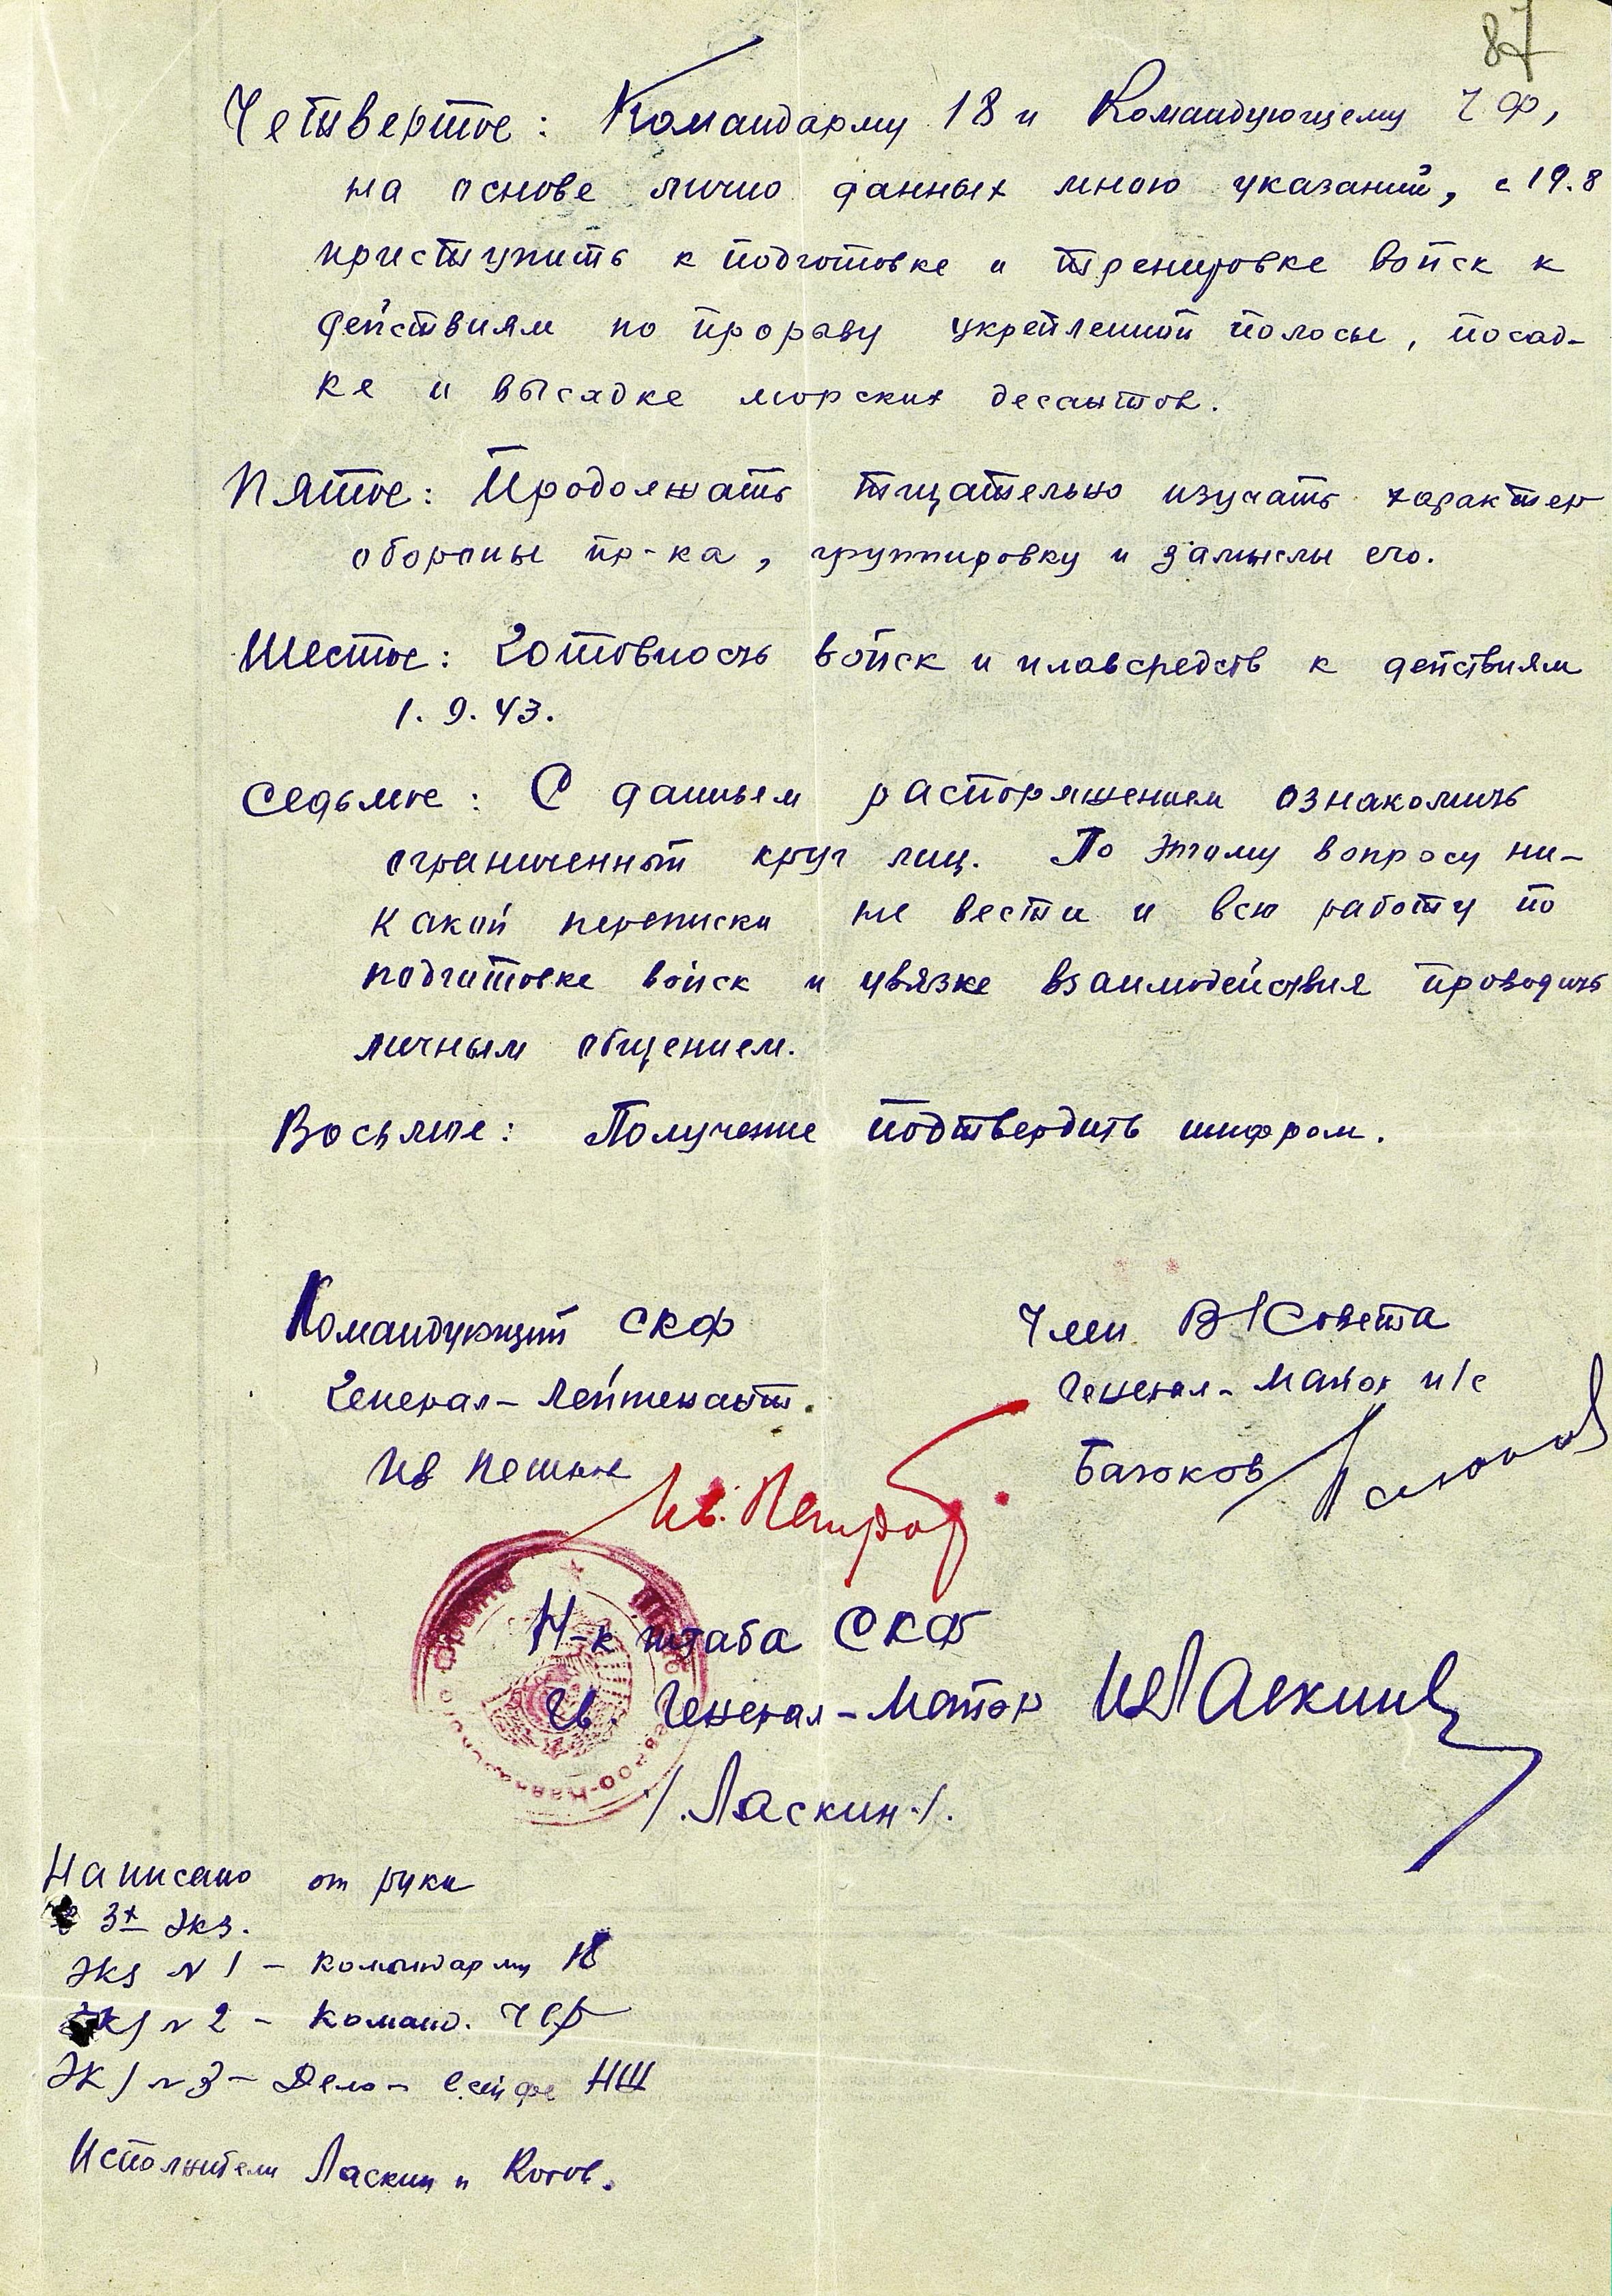 87
Четвертое: Командарму 18 и Командующему ЧФ,
на основе лично данных мною указаний, с 19.8
приступить к подготовке и тренировке войск к
действиям по прорыву укрепленной полосы, посад-
ке и высадке морских десантов.
Пятое: Продолжать тщательно изучать характер
обороны пр-ка, группировку и замыслы его.
Шестое: Готовность войск и плавсредств к действиям
1.9.43.
Седьмое: С данным распоряжением ознакомить
ограниченный круг лиц. По этому вопросу ни-
какой переписки не вести и всю работу по
подготовке войск и увязке взаимодействия проводить
личным общением.
Восьмое: Получение подтвердить шифром.
Командующий СКФ
Генерал-Лейтенант.
Ив Петров
Ив. Петров
Член В/Совета
Генерал-Майор и/с
Баюков
Н-к штаба СКФ
Генерал-Майор
Ласкин
/.Ласкин./.
Написано от руки
3х экз.
Экз №1 – командарму 18
Экз №2 – Команд. ЧФ
Экз №3 – Дело – сейфе НШ
Исполнители Ласкин и Котов.